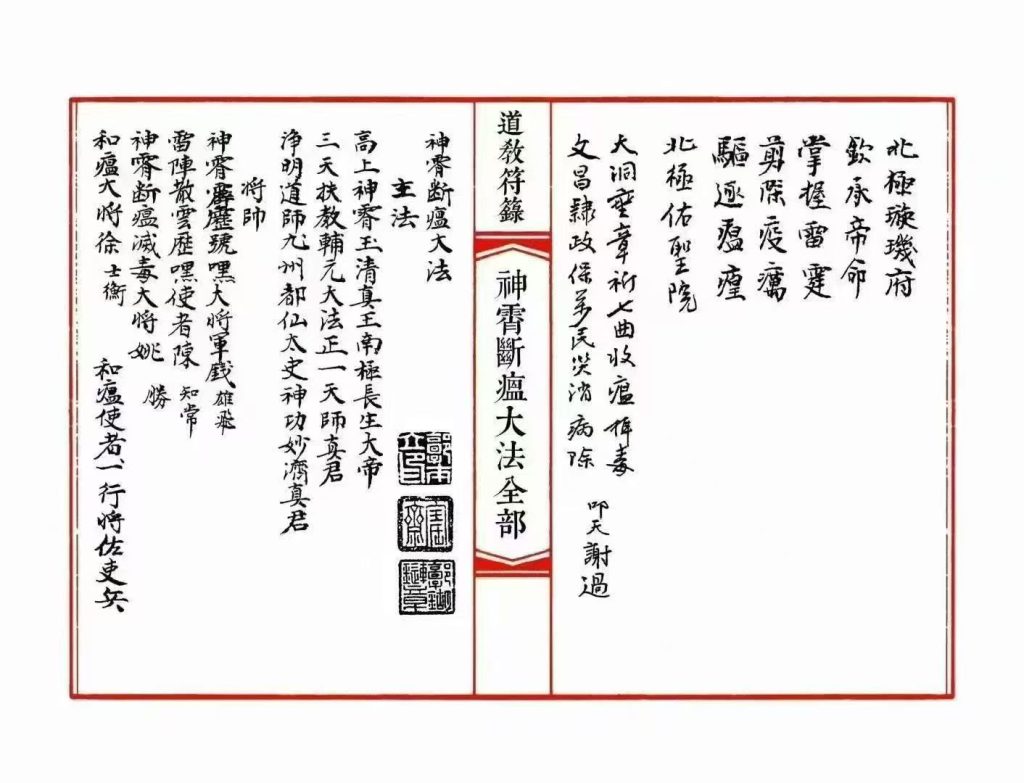 北極璇璣府
欽承帝命
掌握雷霆
剪除疫癘
驅逐瘟瘽
北極佑聖院
大洞靈章祈七曲收瘟攝毒
文昌隸政保萬民災消病除
叩天謝過
道教符籙
神霄斷瘟大法全部
神霄断瘟大法
主法
高上神霄玉清真王南極長生大帝
三天扶教輔元大法正一天師真君
淨明道師九州都仙太史神功妙濟真君
将帥
神霄霹靂號嘿大將軍戲雄飛
雷陣散雲歷嘿使者陳知常
神霄断瘟滅毒大將姚勝
和瘟大将徐士衡
和瘟使者、一行將佐吏兵